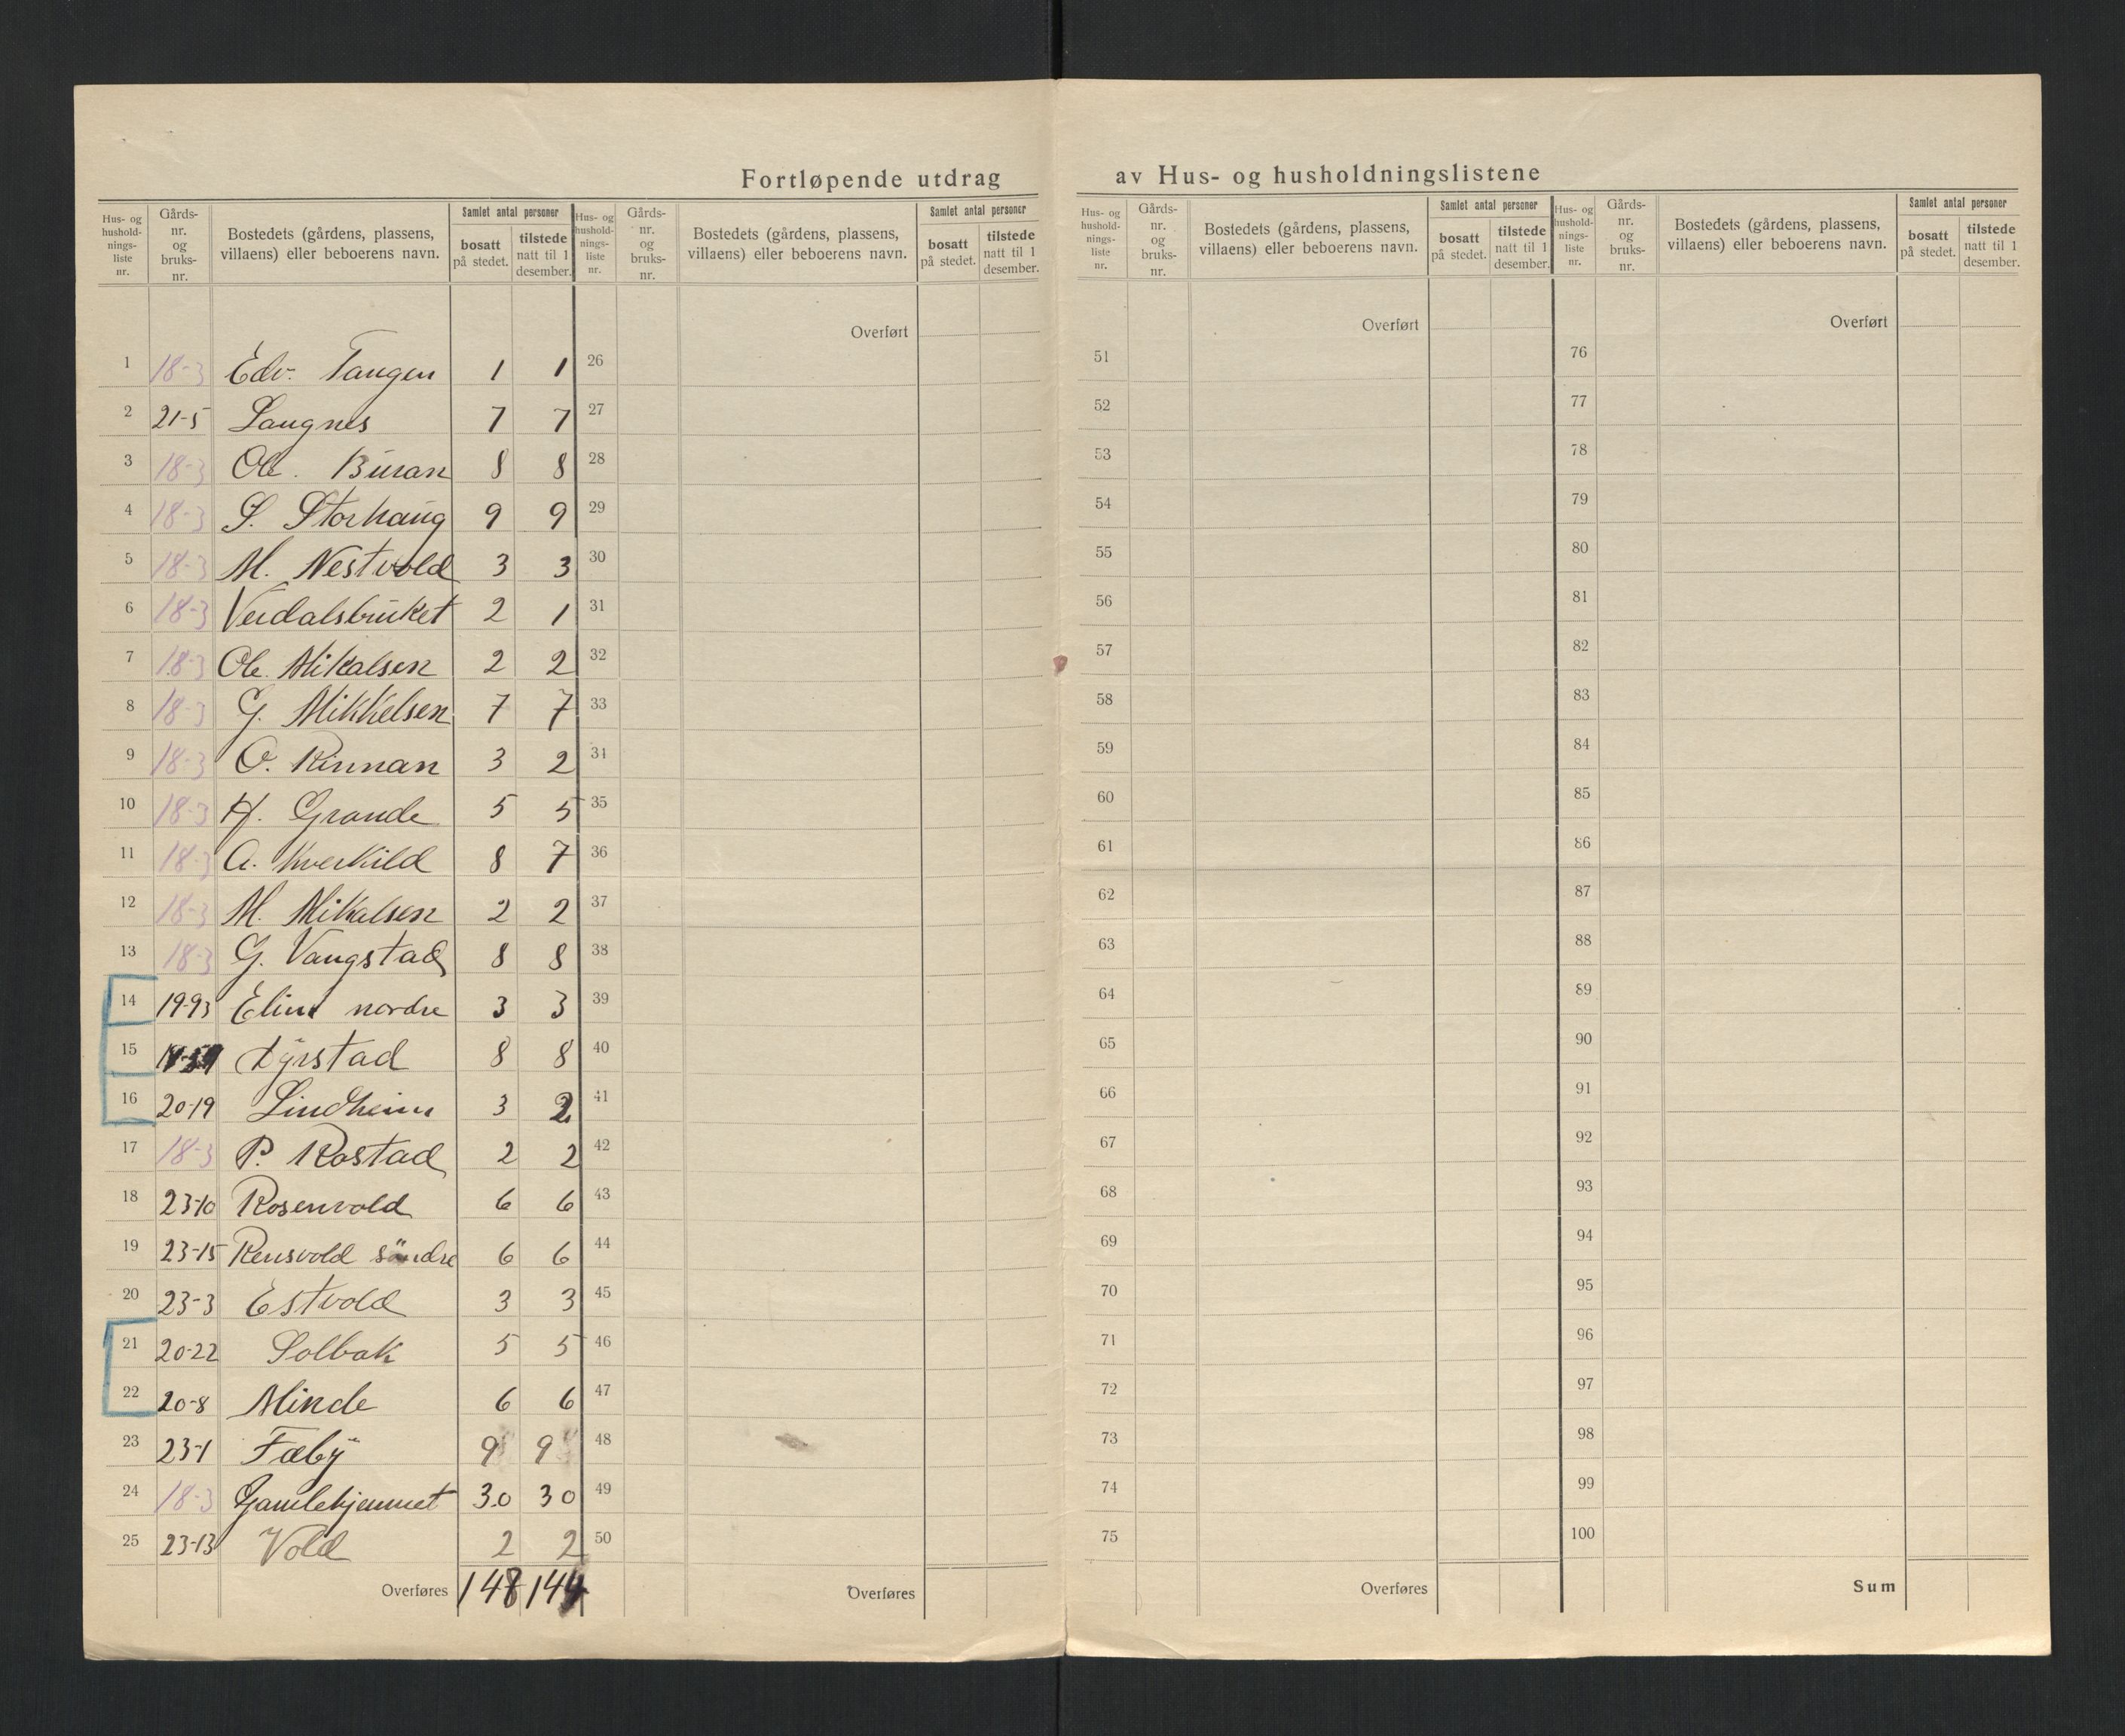 Fortløpende utdrag av Hus- og husholdningslistene
Hus- og hushold-nings-liste nr. Gårds-nr. og bruks-nr. Bostedets (gårdens, plassens, villaens) eller beboerens navn. Samlet antal personer bosatt på stedet. tilstede natt til 1 desember.
1 18-3 Edv. Tangen 1 1
2 21-5 Langnes 7 7
3 18-3 Ole. Buran 8 8
4 18-3 S. Storhaug 9 9
5 18-3 M. Nestvold 3 3
6 18-3 Verdalsbruket 2 1
7 18-3 Ole. Mikalsen 2 2
8 18-3 G. Mikkelsen 7 7
9 18-3 O. Rinnan 3 2
10 18-3 H. Grande 5 5
11 18-3 A. Kverkild 8 7
12 18-3 M. Mikalsen 2 2
13 18-3 G. Vangstad 8 8
14 19-93 Elim nordre 3 3
15 Lyrstad 8 8
16 20-19 Lindheim 3 2
17 18-3 P. Rostad 2 2
18 23-10 Rosenvold 6 6
19 23-15 Rensvold söndre 6 6
20 23-3 Estvold 3 3
21 20-22 Solbak 5 5
22 20-8 Minde 6 6
23 23-1 Fæby 9 9
24 18-3 Gamlehjemmet 30 30
25 23-13 Vold 2 2
Overføres 148 144
Hus- og hushold-nings-liste nr. Gårds-nr. og bruks-nr. Bostedets (gårdens, plassens, villaens) eller beboerens navn. Samlet antal personer bosatt på stedet. tilstede natt til 1 desember.
Overført
26
27
28
29
30
31
32
33
34
35
36
37
38
39
40
41
42
43
44
45
46
47
48
49
50
Overføres
Hus- og hushold-nings-liste nr. Gårds-nr. og bruks-nr. Bostedets (gårdens, plassens, villaens) eller beboerens navn. Samlet antal personer bosatt på stedet. tilstede natt til 1 desember.
Overført
51
52
53
54
55
56
57
58
59
60
61
62
63
64
65
66
67
68
69
70
71
72
73
74
75
Overføres
Hus- og hushold-nings-liste nr. Gårds-nr. og bruks-nr. Bostedets (gårdens, plassens, villaens) eller beboerens navn. Samlet antal personer bosatt på stedet. tilstede natt til 1 desember.
Overført
76
77
78
79
80
81
82
83
84
85
86
87
88
89
90
91
92
93
94
95
96
97
98
99
100
Sum